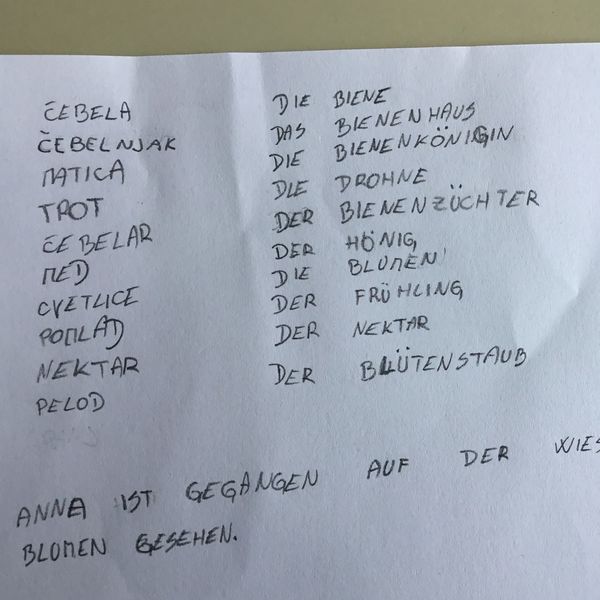 ČEBELA DIE BIENE
ČEBELNJAK DAS BIENENHAUS
MATICA DIE BIENENKÖNIGIN
TROT DIE DROHNE
ČEBELAR DER BIENENZÜCHTER
MED DER HÖNIG
CVETLICE DIE BLUMEN
POMLAD DER FRÜHLING
NEKTAR DER NEKTAR
PELOD DER BLÜTENSTAUB
ANNA IST GEGANGEN AUF DER WIES
BLUMEN GESEHEN.